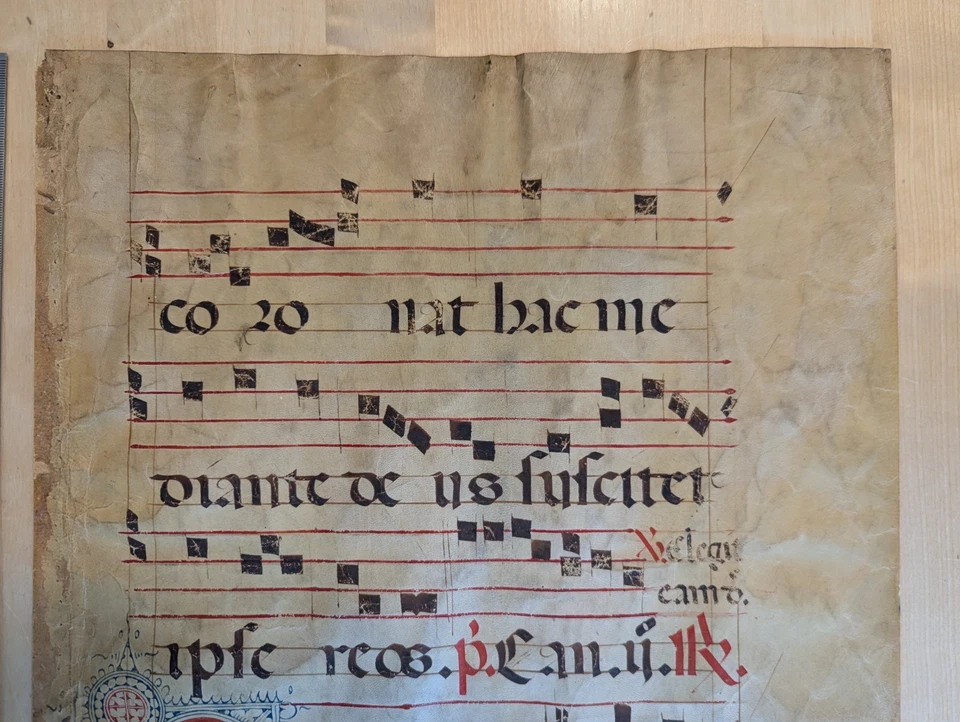 co ro nat hac me
diante de us suscitet
℣. elegit
eam d̄.
ipse reos. p̄. C an. ij. ℟.